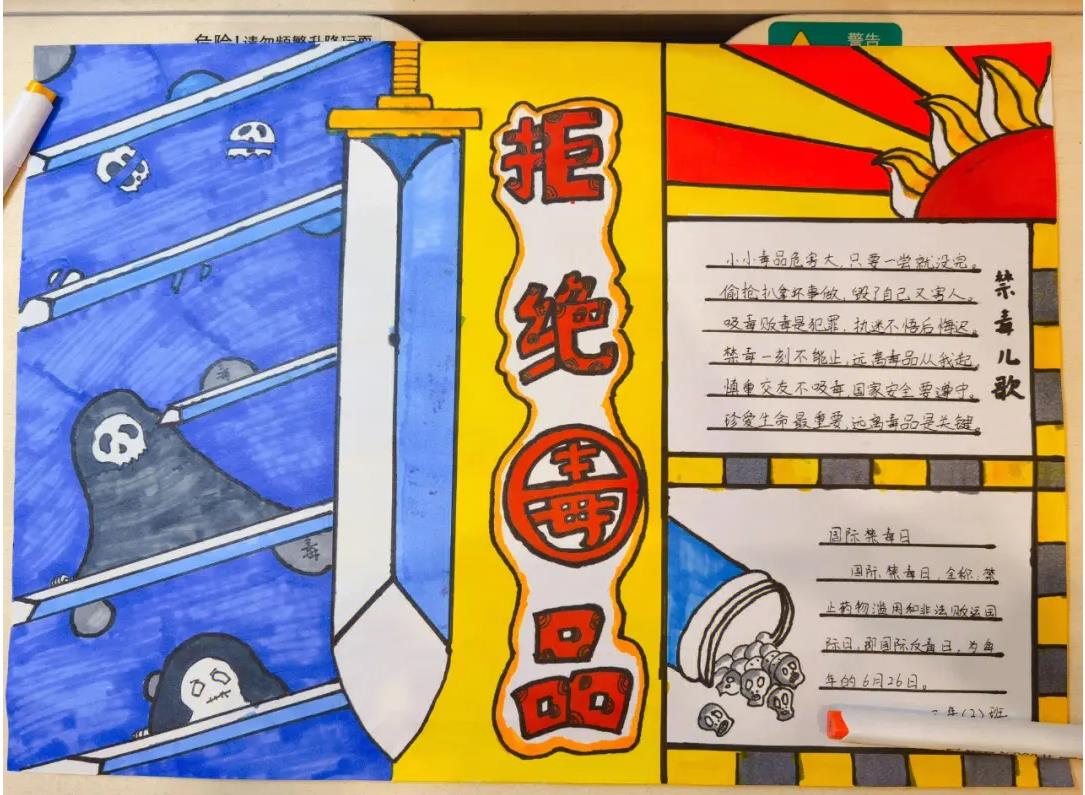 危险!请勿频繁升降玩耍
警告
拒绝毒品
禁毒儿歌
小小毒品危害大,只要一尝就没完。
偷抢扒拿坏事做,毁了自己又害人。
吸毒贩毒是犯罪,执迷不悟后悔迟。
禁毒一刻不能止,远离毒品从我起。
慎重交友不吸毒,国家安全要遵守。
珍爱生命最重要,远离毒品是关键。
毒
国际禁毒日
国际禁毒日,全称:禁
止药物滥用和非法贩运国
际日,即国际反毒日,为每
年的6月26日。
年(2)班